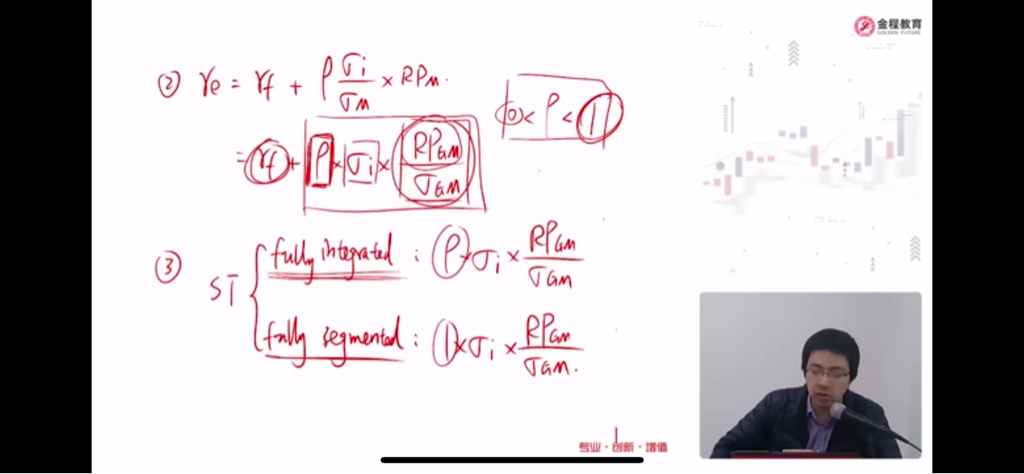 金程教育
GOLDEN FUTURE
② re = rf + ρ σi/σM × RPM.
= rf + ρ × σi × RPGM/σGM
0 < ρ < 1
③ ST { fully integrated : ρ × σi × RPGM/σGM
fully segmented : 1 × σi × RPGM/σGM.
专业·创新·增值